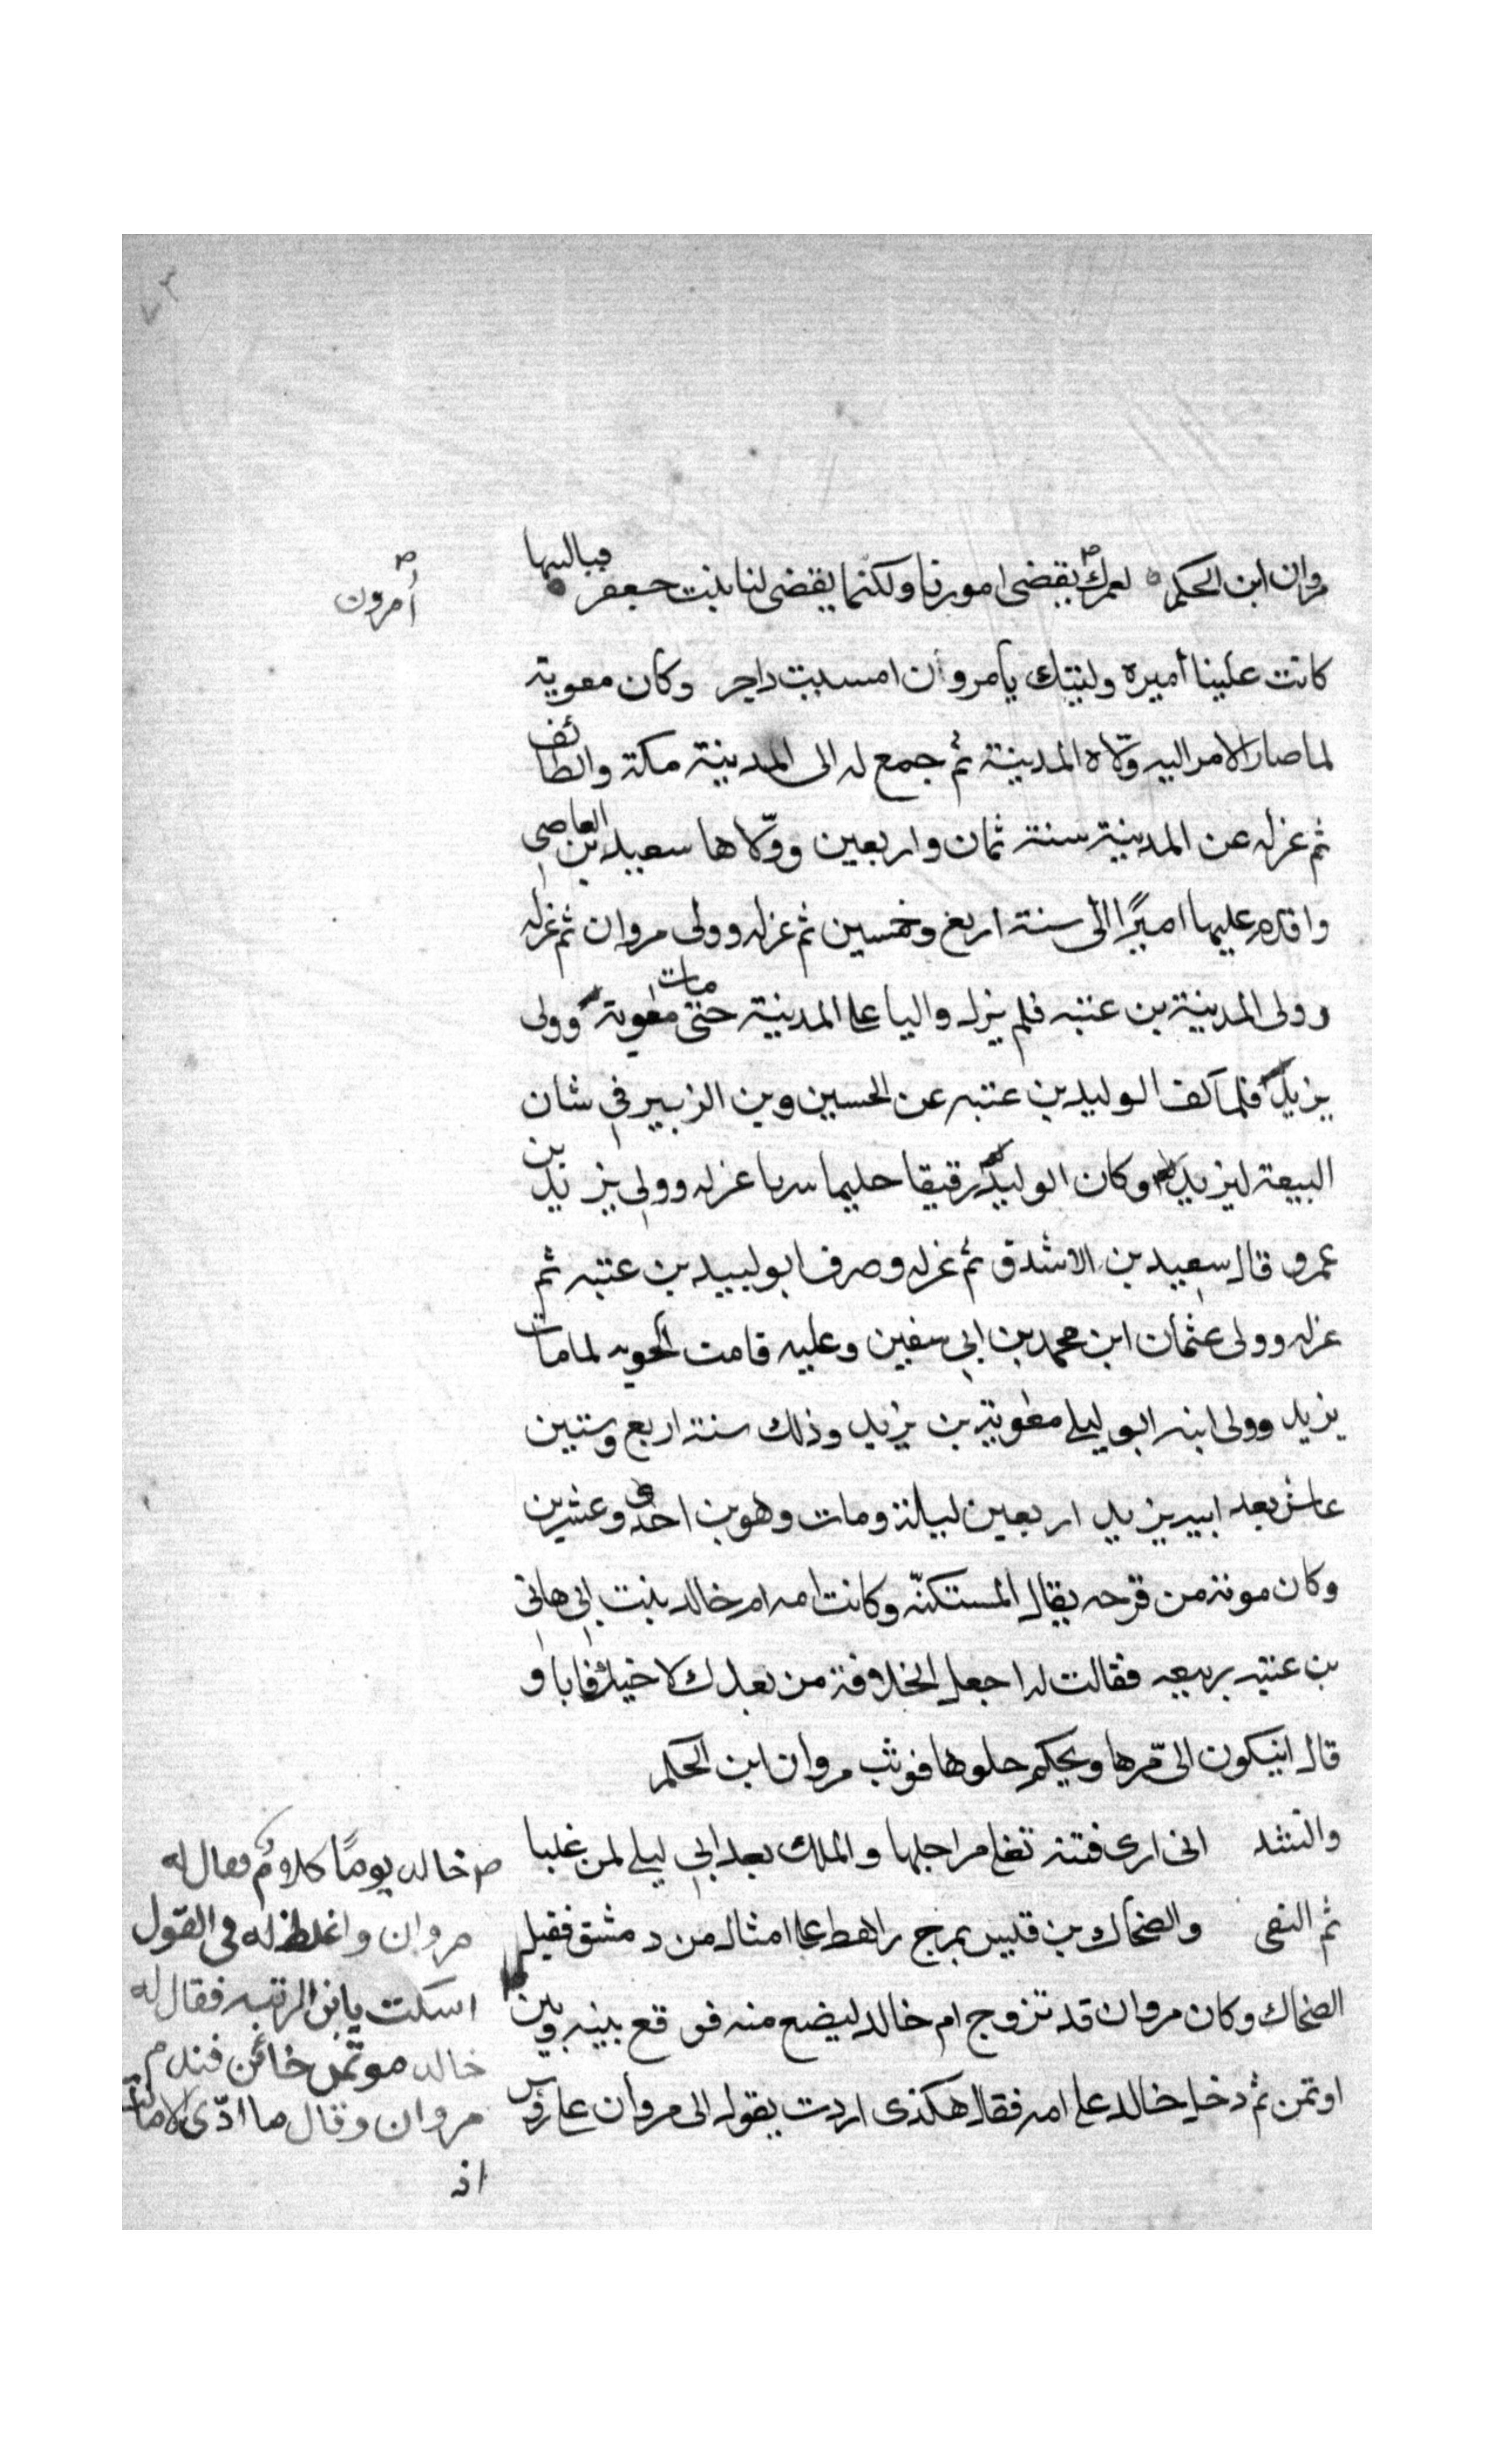 ٧٣
مروان ابن الحكم لعمرك يقضى امورنا ولكنما يقضى لنا بنت جعفر فياليتها
أمرون
كانت علينا أميرة وليتك يامروان امسيت داحر وكان معوية
لما صار الامر اليه ولّاه المدينة ثم جمع له الى المدينة مكة والطائف
ثم عزله عن المدينة سنة ثمان واربعين وولّاها سعيد بن العاصي
واقام عليها اميرًا الى سنة اربع وخمسين ثم عزله وولى مروان ثم عزله
وولى المدينة بن عتبه فلم يزل واليا على المدينة حتى مات معوية وولى
يزيد فلما كف الوليد بن عتبه عن الحسين وبن الزبير في شان
البيعة ليزيد وكان الوليد رقيقا حليما سريا عزله وولى يزيد بن
عمرو قال سعيد بن الاشدق ثم عزله وصرف ابو لبيد بن عتبه ثم
عزله وولى عثمان ابن محمد بن ابي سفين وعليه قامت لما مات
يزيد وولى ابنه ابو ليلى معوية بن يزيد وذلك سنة اربع وستين
عاش بعد ابيه يزيد اربعين ليلة ومات وهو بن احدى وعشرين
وكان موته من قرحه يقال المستكنّه وكانت امه ام خالد بنت ابي هاني
بن عتبه بربيعه فقالت له اجعل الخلافة من بعدك لاخيك فابا و
قال ايكون الىّ مرها ويحكم حلوها فوثب مروان ابن الحكم
وانشد انى ارى فتنة تغلى مراجلها والملك بعد ابي ليلى لمن غلبا
ثم التقى والضحاك بن قيس بمرج راهط على امثال من دمشق فقيل
الضحاك وكان مروان قد تزوج ام خالد ليضع منه فوقع بينه وبين
اوتمن ثم دخل خالد على امه فقال هكذى اردت يقول الى مروان على روس
خالد يومًا كلامٌ فقال له
مروان واغلظ له فى القول
اسكت يابن الرتبه فقال له
خالد موتمن خائن فندم
مروان وقال ما ادّى الامانة
اذ